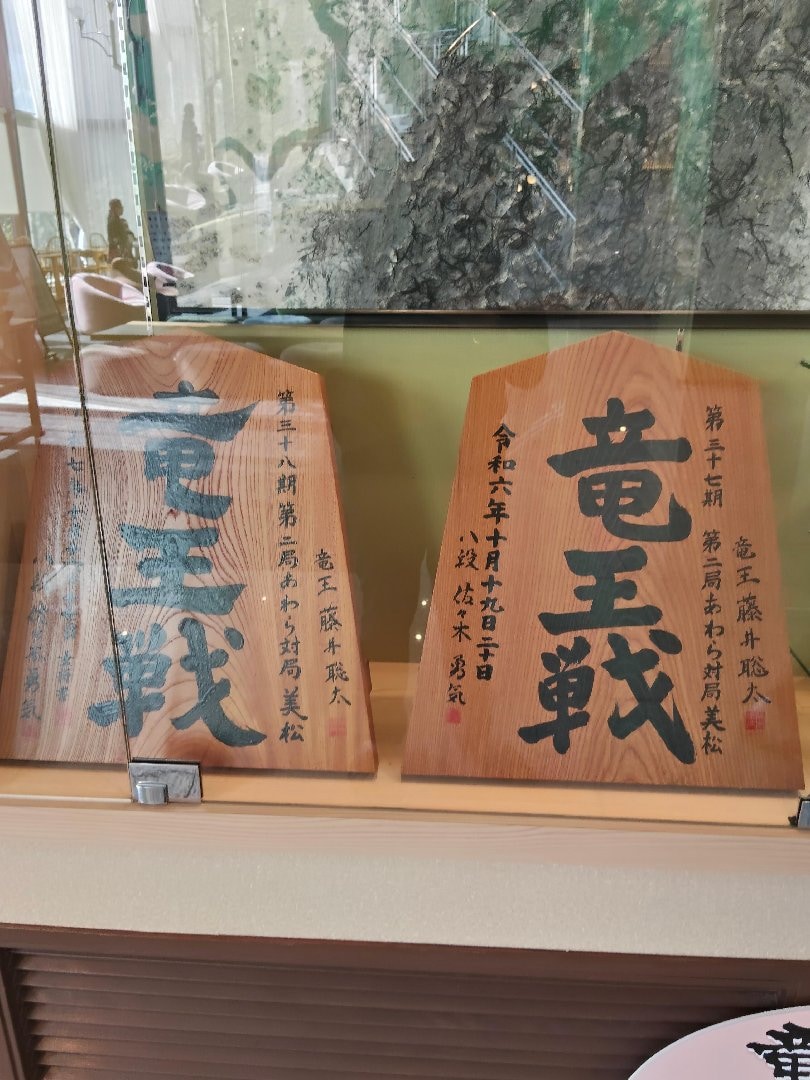 竜王 藤井聡太
第三十七期 第二局あわら対局 美松
竜王戦
令和六年十月十九日二十日
八段 佐々木勇気
竜王 藤井聡太
第三十八期第二局あわら対局 美松
竜王戦
勇気
竜